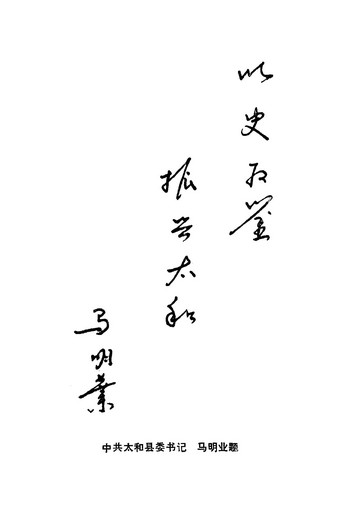 以史取鉴
振兴太和
马明業
中共太和县委书记 马明业题